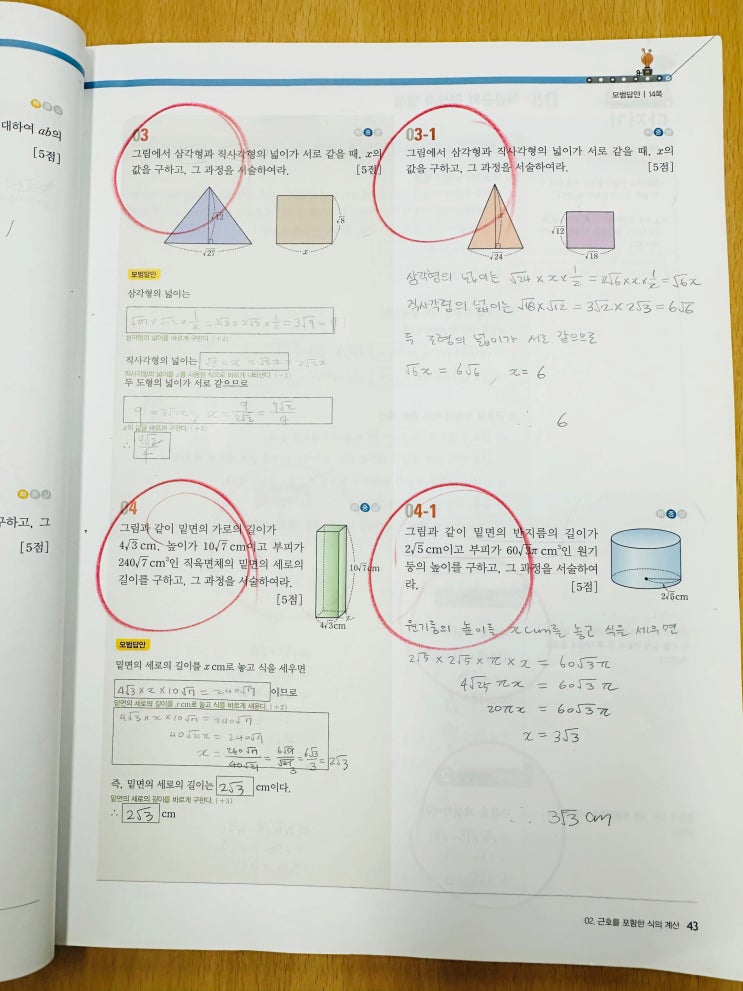 대하여 ab의
[5점]
구하고, 그
[5점]
모범답안 | 14쪽
03
하 중 상
그림에서 삼각형과 직사각형의 넓이가 서로 같을 때, x의
값을 구하고, 그 과정을 서술하여라. [5점]
√12
√27
√8
x
모범답안
삼각형의 넓이는
√27 × √12 × 1/2 = 3√3 × 2√3 × 1/2 = 3√9 = 9
삼각형의 넓이를 바르게 구한다. (+2)
직사각형의 넓이는 √8 × x = √8x = 2√2x
직사각형의 넓이를 x를 사용한 식으로 바르게 나타낸다. (+1)
두 도형의 넓이가 서로 같으므로
9 = 2√2x , x = 9/2√2 = 9√2/4
x의 값을 바르게 구한다. (+2)
∴ 9√2/4
03-1
하 중 상
그림에서 삼각형과 직사각형의 넓이가 서로 같을 때, x의
값을 구하고, 그 과정을 서술하여라. [5점]
x
√24
√12
√18
삼각형의 넓이는 √24 × x × 1/2 = 2√6 × x × 1/2 = √6x
직사각형의 넓이는 √18 × √12 = 3√2 × 2√3 = 6√6
두 도형의 넓이가 서로 같으므로
√6x = 6√6 , x = 6
∴ 6
04
하 중 상
그림과 같이 밑면의 가로의 길이가
4√3 cm, 높이가 10√7 cm이고 부피가
240√7 cm³인 직육면체의 밑면의 세로의
길이를 구하고, 그 과정을 서술하여라.
[5점]
10√7 cm
4√3 cm
x
모범답안
밑면의 세로의 길이를 x cm로 놓고 식을 세우면
4√3 × x × 10√7 = 240√7 이므로
밑면의 세로의 길이를 x cm로 놓고 식을 바르게 세운다. (+2)
4√3 × x × 10√7 = 240√7
40√21x = 240√7
x = 240√7/40√21 = 6√7/√21 = 6√3/3 = 2√3
즉, 밑면의 세로의 길이는 2√3 cm이다.
밑면의 세로의 길이를 바르게 구한다. (+3)
∴ 2√3 cm
04-1
하 중 상
그림과 같이 밑면의 반지름의 길이가
2√5 cm이고 부피가 60√3π cm³인 원기
둥의 높이를 구하고, 그 과정을 서술하여
라. [5점]
2√5 cm
원기둥의 높이를 x cm를 놓고 식을 세우면
2√5 × 2√5 × π × x = 60√3π
4√25πx = 60√3π
20πx = 60√3π
x = 3√3
∴ 3√3 cm
02. 근호를 포함한 식의 계산 43